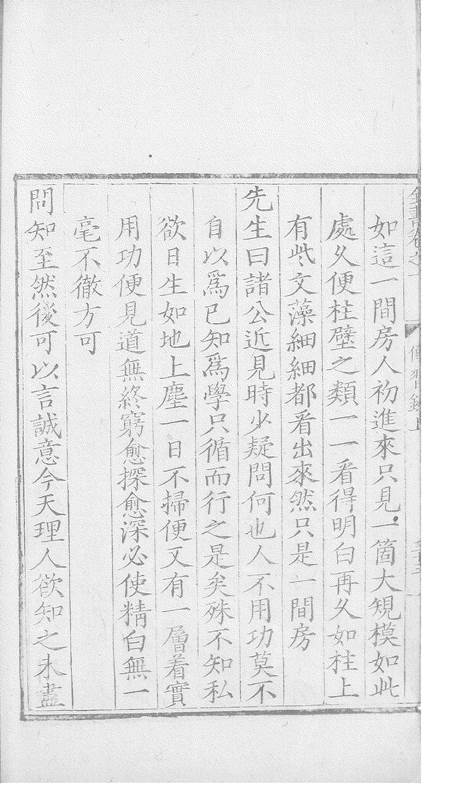 全書卷之一
傳習錄上
如這一間房人初進來只見一箇大規模如此
處久便柱壁之類一一看得明白再久如柱上
有些文藻細細都看出來然只是一間房
先生曰諸公近見時少疑問何也人不用功莫不
自以爲已知爲學只循而行之是矣殊不知私
欲日生如地上塵一日不掃便又有一層着實
用功便見道無終窮愈探愈深必使精白無一
毫不徹方可
問知至然後可以言誠意今天理人欲知之未盡